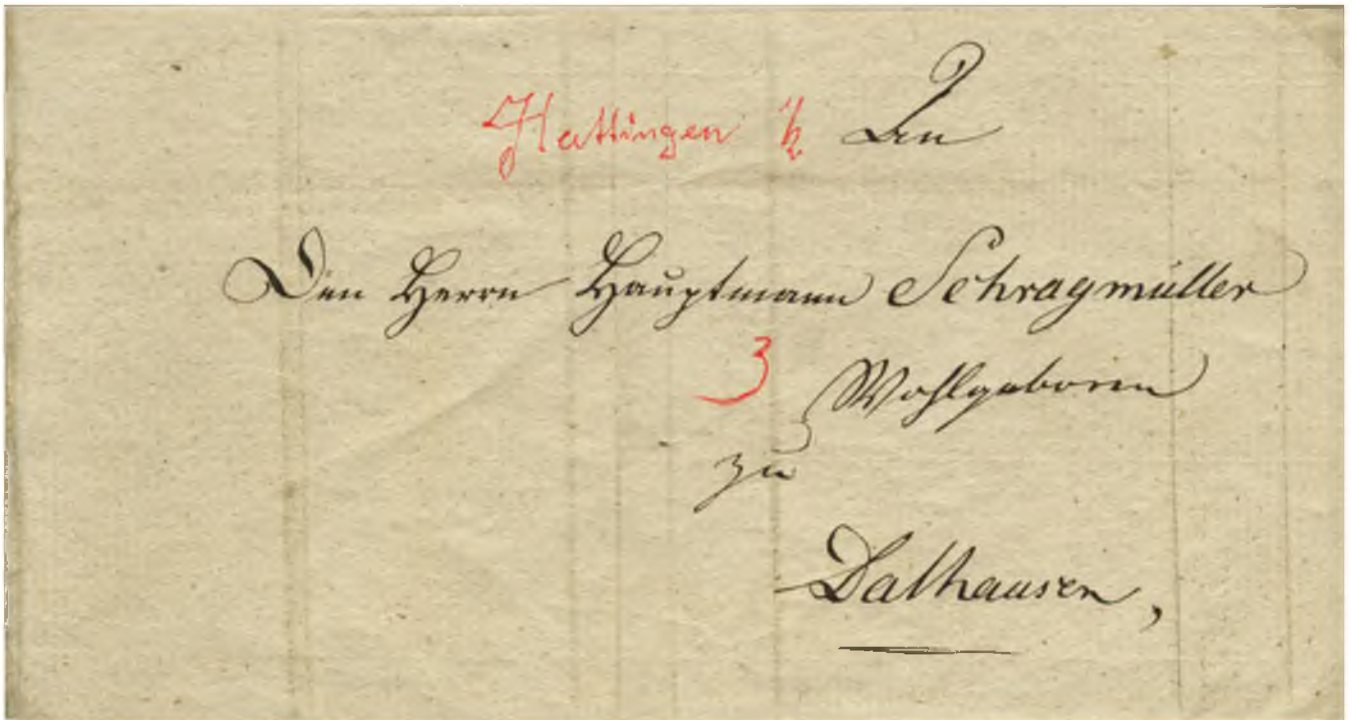 Hattingen An
Den Herrn Hauptmann Schragmüller
3 Wohlgeboren
zu
Dalhausen,